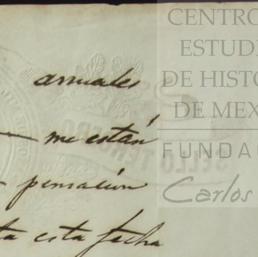 CENTRO
ESTUDI
DE HISTO
DE MEX
FUNDA
Carlos
anuales
me están
pensación
ta esta fecha